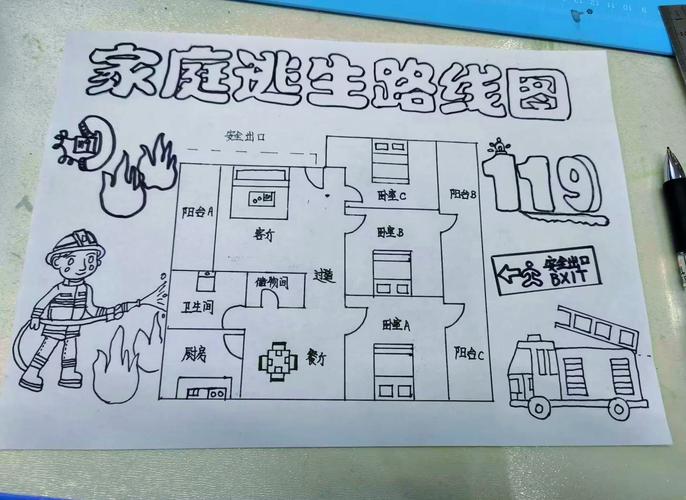 家庭逃生路线图
安全出口
119
阳台A
客厅
卧室C
阳台B
卧室B
过道
储物间
卫生间
安全出口
BXIT
厨房
餐厅
卧室A
阳台C